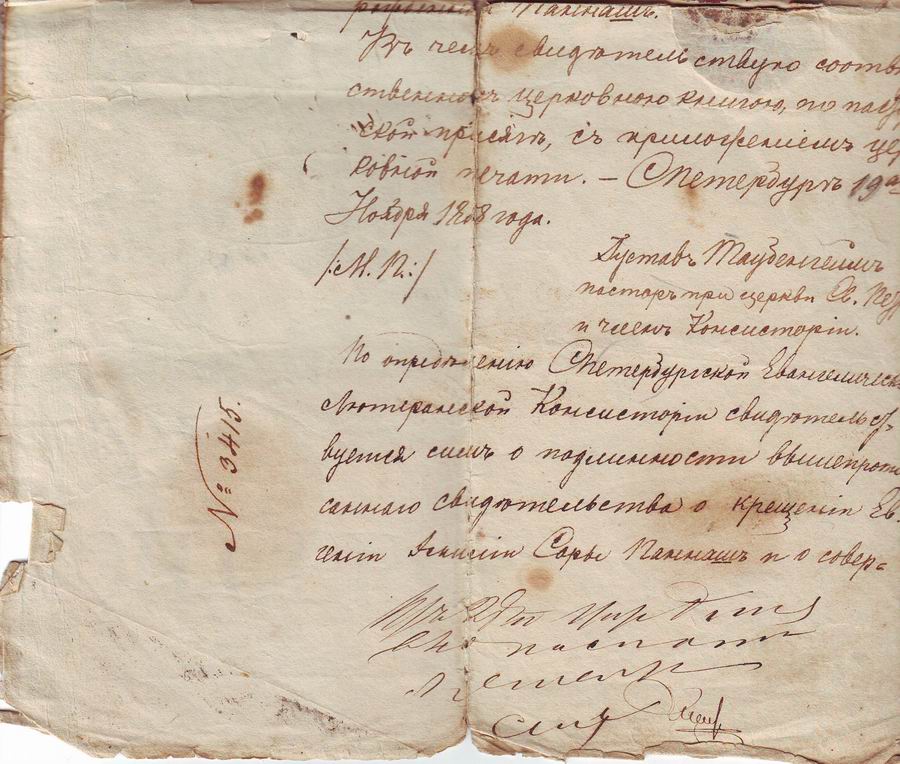 Паннашъ.
Въ чемъ свидѣтельствую соотвѣт
ственно съ церковною книгою, по пастыр
ской присягѣ, съ приложеніемъ цер
ковной печати. – СПетербургъ 19го
Ноября 1858 года.
/:М. П.:/
Густавъ Таубенгеймъ
пасторъ при церкви Св. Петр
и членъ Консисторіи.
По опредѣленію СПетербургской Евангелическ
Лютеранской Консисторіи свидѣтельст-
вуется симъ о подлинности вышепропи
саннаго свидѣтельства о крещеніи Ев-
геніи Сары Паннашъ и о совер-
№ 3415.